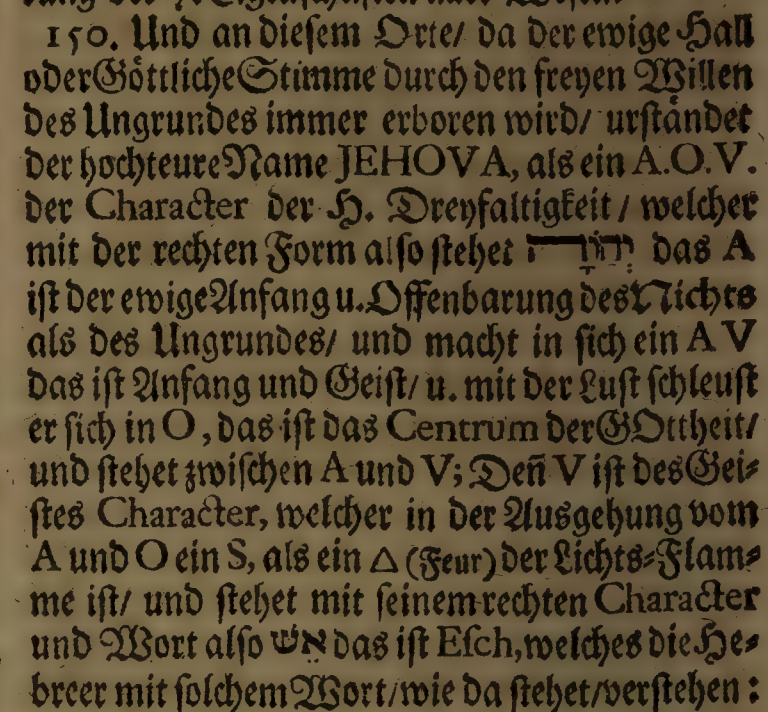 150. Und an diesem Orte/ da der ewige Hall
oder Göttliche Stimme durch den freyen Willen
des Ungrundes immer erboren wird/ urständet
der hochteure Name JEHOVA, als ein A.O.V.
der Character der H. Dreyfaltigkeit / welcher
mit der rechten Form also stehet das A
ist der ewige Anfang u. Offenbarung des Nichts
als des Ungrundes/ und macht in sich ein A V
das ist Anfang und Geist/ u. mit der Lust schleust
er sich in O, das ist das Centrum der GOttheit/
und stehet zwischen A und V; Deñ V ist des Gei-
stes Character, welcher in der Ausgehung vom
A und O ein S, als ein △ (Feur) der Lichts-Flam-
me ist/ und stehet mit seinem rechten Character
und Wort also אֵשׁ das ist Esch, welches die He-
breer mit solchem Wort/ wie da stehet/ verstehen: